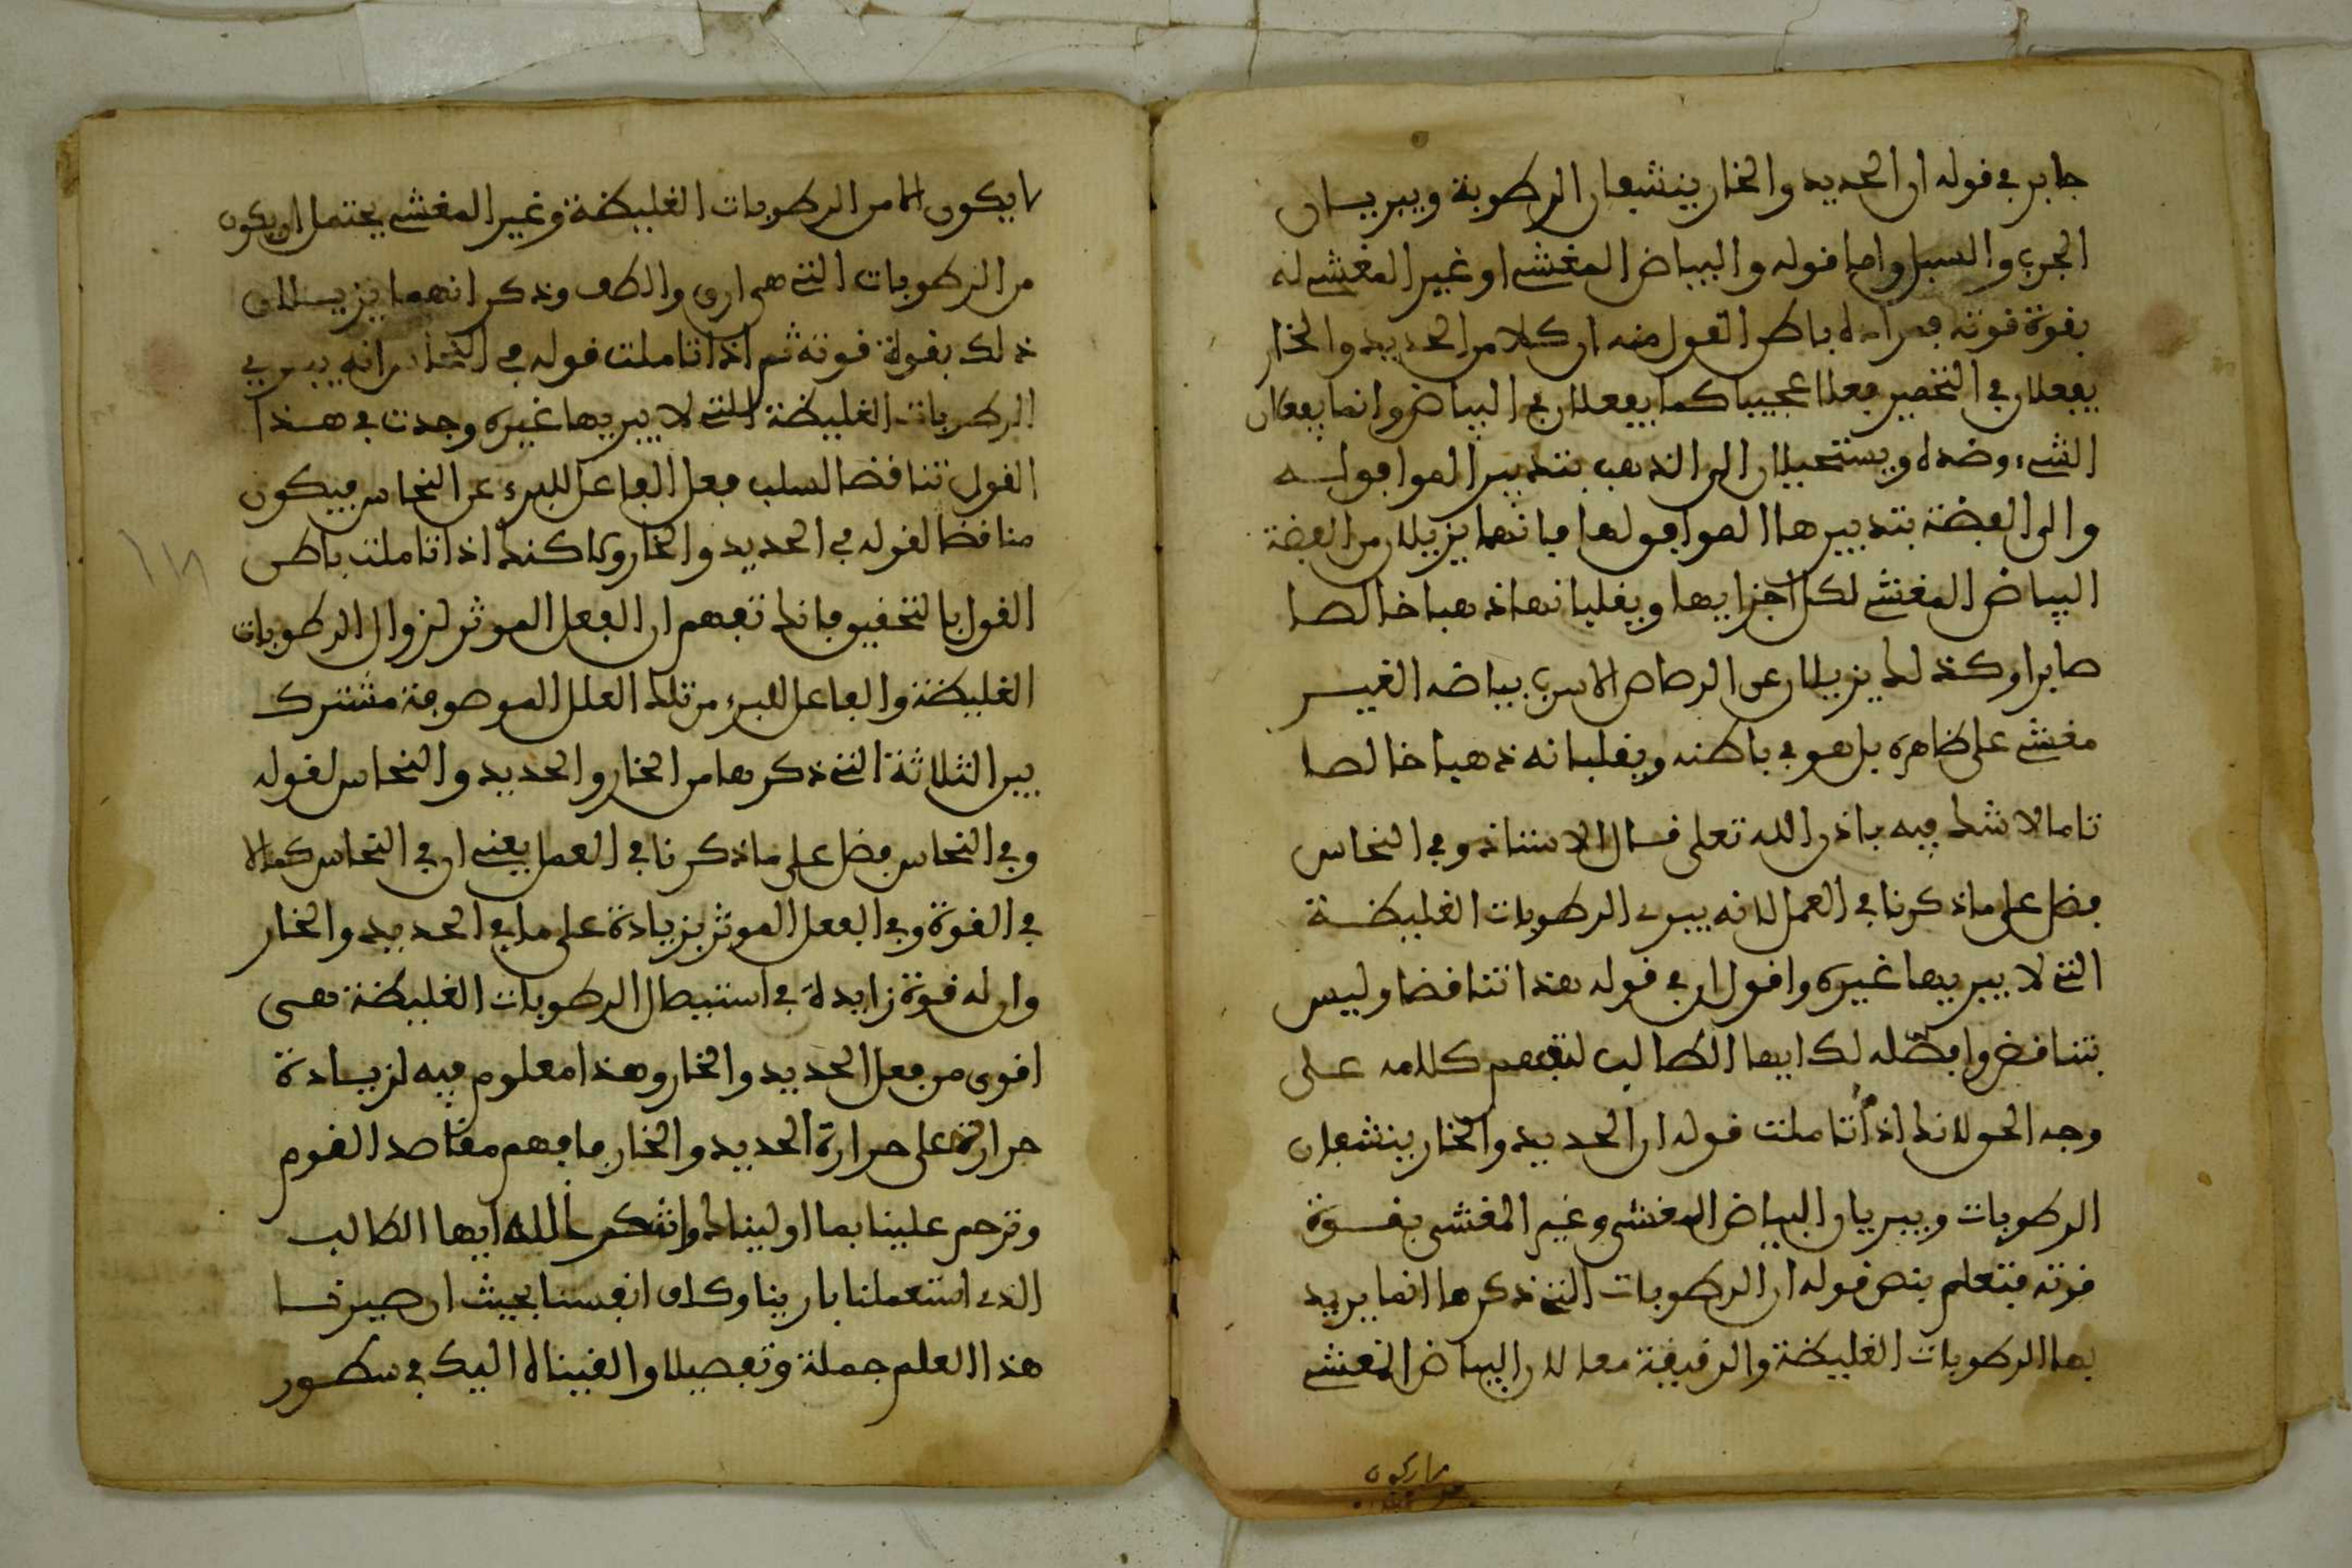 جابر في قوله ان الحديد والخار ينشفان الرطوبة ويبريان
الجرب والسبل واما قوله والبياض المغشي او غير المغشي له
بقوة قوته فمراده باطن القول منه ان كلا من الحديد والخار
يفعلان في التخمير فعلا عجيبا كما يفعلان في البياض وانما يفعلان
الشيء وضده ويستحيلان الى الذهب بتدبير الموافق له
والى الفضة بتدبيرها الموافق لها فانهما يزيلان من الفضة
البياض المغشي لكل اجزايها ويقلبانها ذهبا خالصا
صابرا وكذلك يزيلان عن الرصاص الاسرب بياضه الغير
مغشي على ظاهره بل هو في باطنه ويقلبانه ذهبا خالصا
تاما لا شك فيه باذن الله تعلى قال الاستاذ وفي النحاس
فضل على ما ذكرنا في العمل لانه يبرى الرطوبات الغليظة
التي لا يبريها غيره واقول ان في قوله هذا تناقضا وليس
بتناقض وافصله لك ايها الطالب لتفهم كلامه على
وجه الحق لانك اذا تاملت قوله ان الحديد والخار ينشفان
الرطوبات ويبريان البياض المغشي وغير المغشي بقوة
قوته فتعلم بنص قوله ان الرطوبات التي ذكرها انما يريد
بها الرطوبات الغليظة والرقيقة معا لان البياض المغشي
لا يكون الا من الرطوبات الغليظة وغير المغشي يحتمل ان يكون
من الرطوبات التي هي ارق والطف وذكر انهما يزيلان
ذلك بقوة قوته ثم اذا تاملت قوله في النحاس انه يبري
الرطوبات الغليظة التي لا يبريها غيره وجدت في هذا
القول تناقضا لسلب فعل الفاعل للبرء عن النحاس فيكون
مناقضا لقوله في الحديد والخار ولاكنك اذا تاملت باطن
القول بالتحقيق فانك تفهم ان الفعل الموثر لزوال الرطوبات
الغليظة والفاعل للبرء من تلك العلل الموصوفة مشترك
بين الثلاثة التي ذكرها من الخار والحديد والنحاس لقوله
وفي النحاس فضل على ما ذكرنا في العمل يعني ان في النحاس كمالا
في القوة وفي الفعل الموثر بزيادة على ما في الحديد والخار
وان له قوة زايدة في استيصال الرطوبات الغليظة هي
اقوى من فعل الحديد والخار وهذا معلوم فيه لزيادة
حرارته على حرارة الحديد والخار فافهم مقاصد القوم
وترحم علينا بما اوليناك واشكر الله ايها الطالب
الذي استعملنا بارينا وكلف انفسنا بحيث ان صيرنا
هذا العلم جملة وتفصيلا والقيناه اليك في سطور